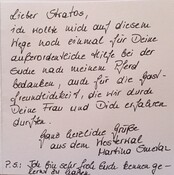 Lieber Stratos,
ich wollte mich auf diesem
Wege noch einmal für Deine
außerordentliche Hilfe bei der
Suche nach meinem Pferd
bedanken, auch für die Gast-
freundlichkeit, die wir durch
Deine Frau und Dich erfahren
durften.
Ganz herzliche Grüße
aus dem Westerwald
Martina
P.S.: Ich bin sehr froh Euch kennenge-
lernt zu haben